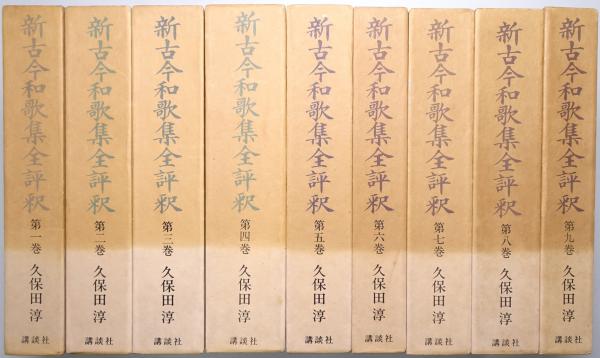 新古今和歌集全評釈
第一巻
久保田淳
講談社
新古今和歌集全評釈
第二巻
久保田淳
講談社
新古今和歌集全評釈
第三巻
久保田淳
講談社
新古今和歌集全評釈
第四巻
久保田淳
講談社
新古今和歌集全評釈
第五巻
久保田淳
講談社
新古今和歌集全評釈
第六巻
久保田淳
講談社
新古今和歌集全評釈
第七巻
久保田淳
講談社
新古今和歌集全評釈
第八巻
久保田淳
講談社
新古今和歌集全評釈
第九巻
久保田淳
講談社